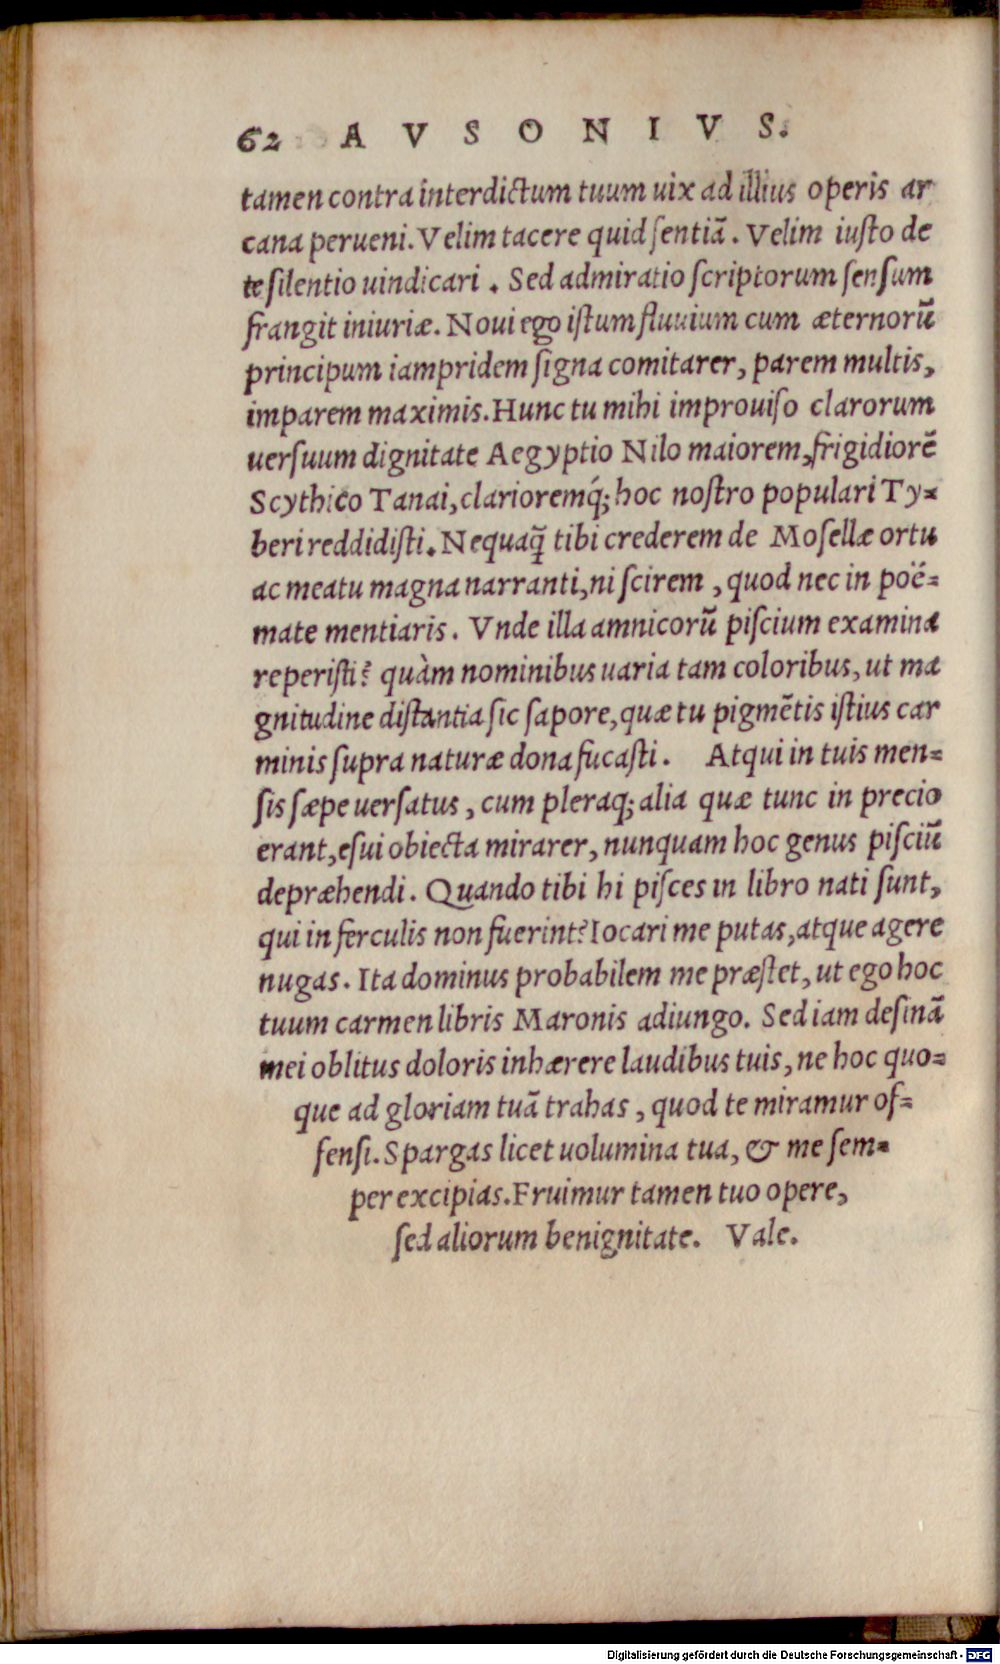 62 AVSONIVS.
tamen contra interdictum tuum uix ad illius operis ar
cana perueni. Velim tacere quid ſentiã. Velim iuſto de
te ſilentio uindicari. Sed admiratio ſcriptorum ſenſum
frangit iniuriæ. Noui ego iſtum fluuium cum æternorũ
principum iampridem ſigna comitarer, parem multis,
imparem maximis. Hunc tu mihi improuiſo clarorum
uerſuum dignitate Aegyptio Nilo maiorem, frigidiorẽ
Scythico Tanai, clarioremq́; hoc noſtro populari Ty-
beri reddidiſti. Nequaq̃ tibi crederem de Moſellæ ortu
ac meatu magna narranti, ni ſcirem, quod nec in poë-
mate mentiaris. Vnde illa amnicorũ piſcium examina
reperiſti? quàm nominibus uaria tam coloribus, ut ma
gnitudine diſtantia ſic ſapore, quæ tu pigmẽtis iſtius car
minis ſupra naturæ dona fucaſti. Atqui in tuis men-
ſis ſæpe uerſatus, cum pleraq; alia quæ tunc in precio
erant, eſui obiecta mirarer, nunquam hoc genus piſciũ
depræhendi. Quando tibi hi piſces in libro nati ſunt,
qui in ferculis non fuerint? Iocari me putas, atque agere
nugas. Ita dominus probabilem me præſtet, ut ego hoc
tuum carmen libris Maronis adiungo. Sed iam deſinã
mei oblitus doloris inhærere laudibus tuis, ne hoc quo-
que ad gloriam tuã trahas, quod te miramur of-
fenſi. Spargas licet uolumina tua, & me ſem-
per excipias. Fruimur tamen tuo opere,
ſed aliorum benignitate. Vale.
Digitalisierung gefördert durch die Deutsche Forschungsgemeinschaft - DFG